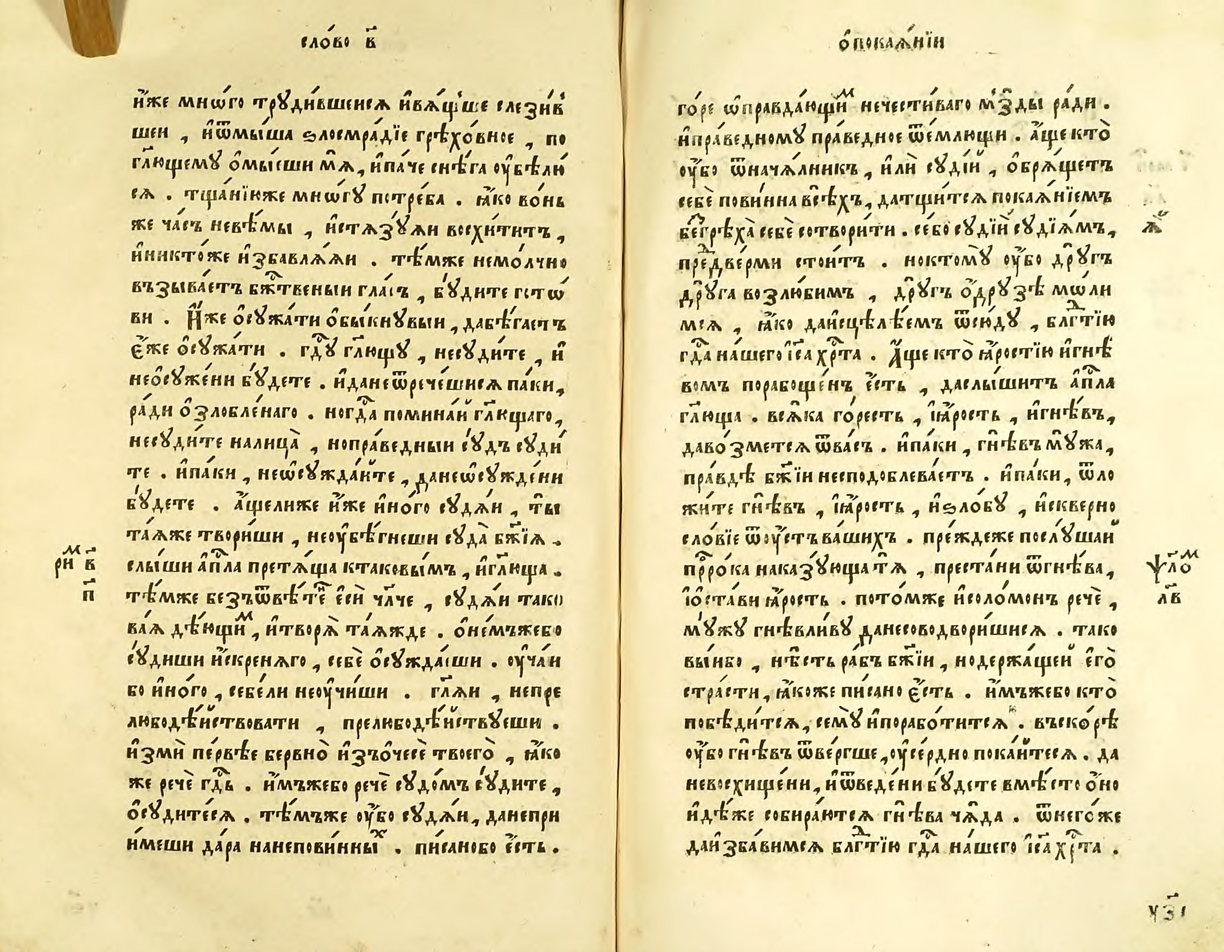 сло́во в҃
и҆́же мнѡ́го трꙋди́вшеисѧ и҆вѧ́щ'ше слези́в
шеи , и҆ѿмы́ша ѕлосмра́дїе грѣ҆хо́вное , по
гл҃ющемꙋ ѻ҆мы́еши мѧ̀ , и҆па́че снѣ́га ᲂу҆бѣлю́
сѧ . тща́нїиже мнѡ́гꙋ потре́ба . ꙗ҆́ко во́нь
же ча́съ невѣ́мы , и҆стѧзꙋ́ѧи восхи́титъ ,
и҆никто́же и҆збавлѧ́ѧи . тѣ́мже немо́лчно
възыва́етъ бж҃твеныи гла́съ , бꙋ́дите гото̀
ви . И҆́же ѻ҆сꙋжа́ти ѻ҆бы́кнꙋвыи , дабѣ́гаетъ
є҆́же ѻ҆сꙋжа́ти . гдⷭ҇ꙋ гл҃ющꙋ , несꙋди́те , и҆
неѻ҆сꙋже́ни бꙋ́дете . и҆данеѿрече́шисѧ па́ки ,
ра́ди ѻ҆зло́бленаго . ногдⷭ҇а помина́й гл҃ющаго ,
несꙋди́те налица̀ , нопра́ведныи сꙋ́дъ сꙋди́
те . и҆па́ки , неѡ҆сꙋжда́йте , данеѡ҆сꙋжде́ни
бꙋ́дете . а҆́щелиже и҆́же и҆но́го сꙋдѧ́и , ты́
та́ѧже твори́ши , неᲂу҆бѣ́гнеши сꙋда̀ бж҃їѧ .
слы́ши а҆пⷭ҇ла претѧ́ща ктаковы́мъ , и҆гл҃юща .
рим в҃
п҃
тѣ́мже безъѿвѣ́тенъ є҆сѝ чл҃че , сꙋдѧ́и тако
ваѧ дѣ́ющимъ , и҆творѧ̀ та́ѧжде . ѻ҆не́мъжебо
сꙋ́диши и҆́скренѧго , себѐ ѻ҆сꙋжда́еши . ᲂу҆ча́и
бо и҆но́го , себе́ли неᲂу҆чи́ши . гл҃ѧи , непре
любодѣ́йствовати , прелюбодѣ́йствꙋеши .
и҆змѝ пе́рвѣе бервно̀ и҆зъѻ҆́чесѐ твоего̀ , ꙗ҆́ко
же речѐ гдⷭ҇ь . и҆́мъжебо речѐ сꙋдо́мъ сꙋ́дите ,
ѻ҆сꙋ́дитесѧ . тѣ́мъже ᲂу҆́бо сꙋдѧ́и , данепри
и҆́меши да́ра нанепови́нныхъ . пи́санобо є҆́сть .
ѻ҆покаѧ́нїи
го́ре ѡ҆правда́ющимъ нечести́ваго мз҃ды ра́ди .
и҆пра́ведномꙋ пра́ведное ѿе́млющи . а҆́ще кто̀
ᲂу҆́бо ѿнача́лникъ , и҆лѝ сꙋді́и , ѻ҆брѧ́щетъ
себѐ пови́нна всѣ́хъ , датщи́тсѧ покаѧ́нїемъ
безгрѣ́ха̀ себѐ сотвори́ти . себо сꙋдїѝ сꙋдїѧ́мъ ,
ѧ҃
преⷣдве́рми стои́тъ . ноктомꙋ̀ ᲂу҆́бо дрꙋ́гъ
дрꙋ́га возлю́бимъ , дрꙋ́гъ ѻ҆дрꙋ́зѣ мѡли
мсѧ , ꙗ҆́ко даи҆сцѣлѣ́емъ ѿсю́дꙋ , блгⷣтїю
гдⷭ҇а на́шего і҆с҃а хрⷭ҇та . А҆́ще кто̀ ꙗ҆́ростїю и҆гнѣ́
вомъ порабоще́нъ є҆́сть , даслы́шитъ а҆пⷭ҇ла
гл҃юща . всѧ́ка го́ресть , и҆ꙗ҆́рость , и҆гнѣ́въ ,
даво́зметсѧ ѿва́съ . и҆па́ки , гнѣ́въ мꙋ́жа ,
пра́вдѣ бж҃їи несподоблева́етъ . и҆па́ки , ѿло
жи́те гнѣ́въ , и҆ꙗ҆́рость , и҆ѕло́бꙋ , и҆скверно
сло́вїе ѿᲂу҆́стъ ва́шихъ . пре́ждеже послꙋ́шаи
прⷪ҇ро́ка наказꙋ́юща тѧ̀ , преста́ни ѿгнѣ́ва ,
ѱ҃лом
лв҃
і҆ѻ҆ста́ви ꙗ҆́рость . пото́мже и҆соломо́нъ речѐ ,
мꙋ́жꙋ гнѣвли́вꙋ данесоводвори́шисѧ . тако
вы́ибо , нѣ́сть ра́бъ бж҃їи , нодержа́щей є҆го̀
стра́сти , ꙗ҆́коже пи́сано є҆́сть . и҆́мъжебо кто̀
побѣди́тсѧ , семꙋ̀ и҆порабо́титсѧ . въско́рѣ
ᲂу҆́бо гнѣ́въ ѿве́ргше , ᲂу҆се́рдно пока́йтесѧ . да
невосхище́ни , и҆ѿведе́ни бꙋ́дете вмѣ́сто ѻ҆́но
и҆дѣ́же собира́ютсѧ гнѣ́ва чѧ́да . ѿнего́же
даи҆зба́вимсѧ блгⷣтїю гдⷭ҇а на́шего і҆с҃а хрⷭ҇та .